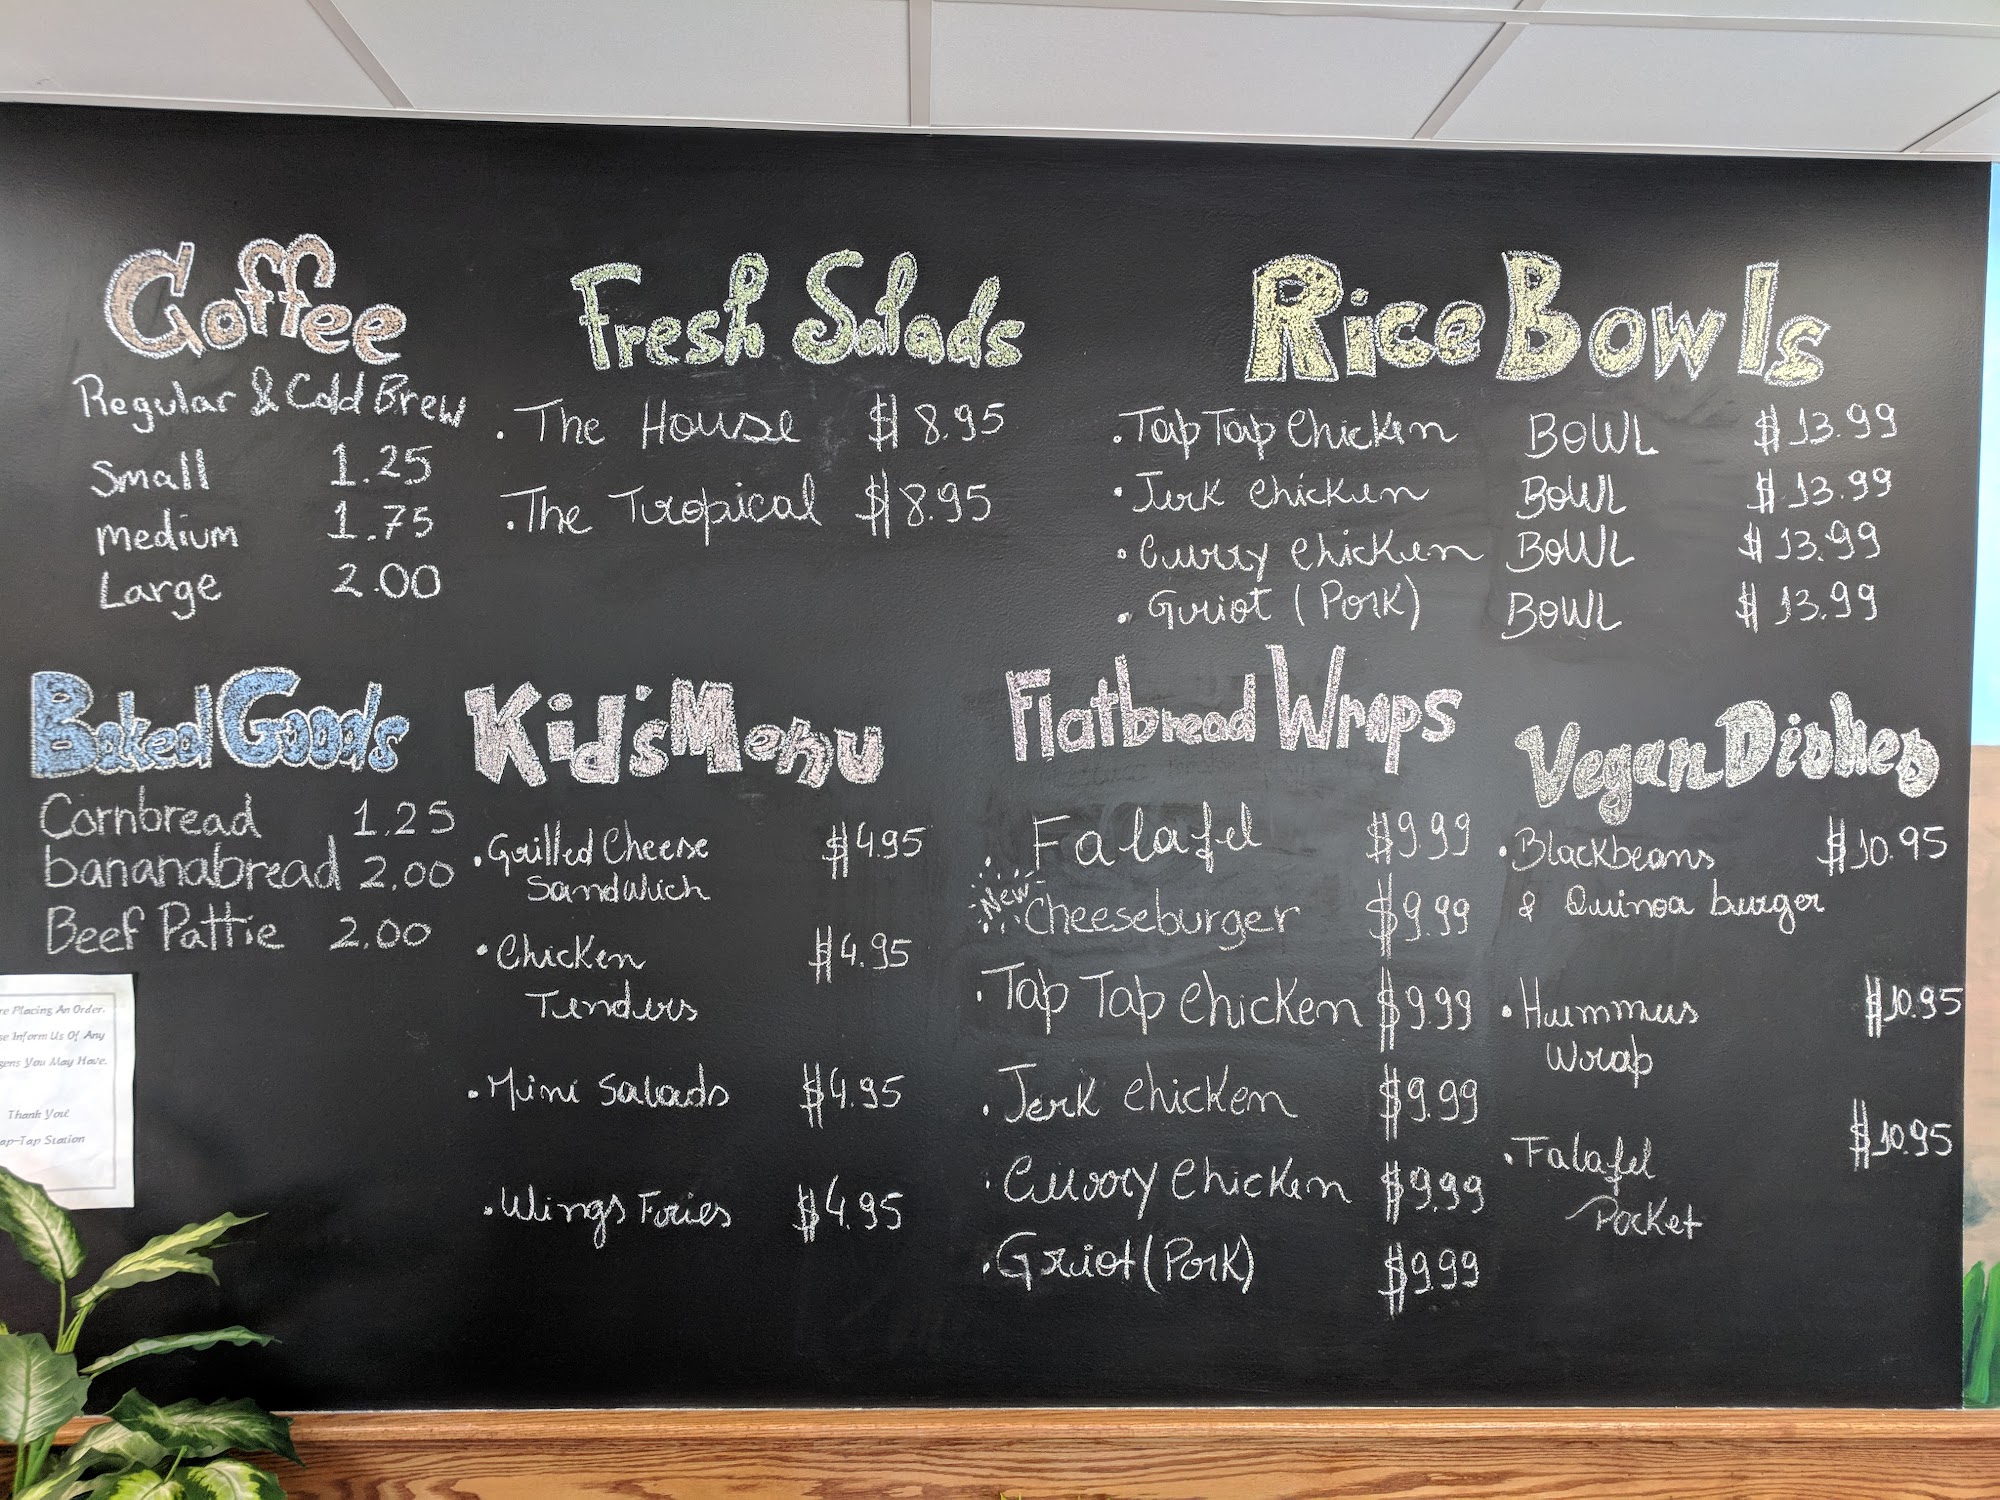 Coffee
Regular & Cold Brew
Small 1.25
medium 1.75
Large 2.00
Fresh Salads
. The House $8.95
. The Tropical $8.95
Rice Bowls
. Tap Tap Chicken BOWL $13.99
. Jerk Chicken BOWL $13.99
. Curry Chicken BOWL $13.99
. Griot (Pork) BOWL $13.99
Baked Goods
Cornbread 1.25
bananabread 2.00
Beef Pattie 2.00
Kid's Menu
. Grilled Cheese $4.95
Sandwich
. Chicken $4.95
Tenders
. Mini Salads $4.95
. Wings Fries $4.95
Flatbread Wraps
. Falafel $9.99
New Cheeseburger $9.99
. Tap Tap Chicken $9.99
. Jerk Chicken $9.99
. Curry Chicken $9.99
. Griot (Pork) $9.99
Vegan Dishes
. Blackbeans $10.95
& Quinoa burger
. Hummus $10.95
Wrap
. Falafel $10.95
Pocket
Placing An Order,
Inform Us Of Any
You May Have.
Thank You!
Station